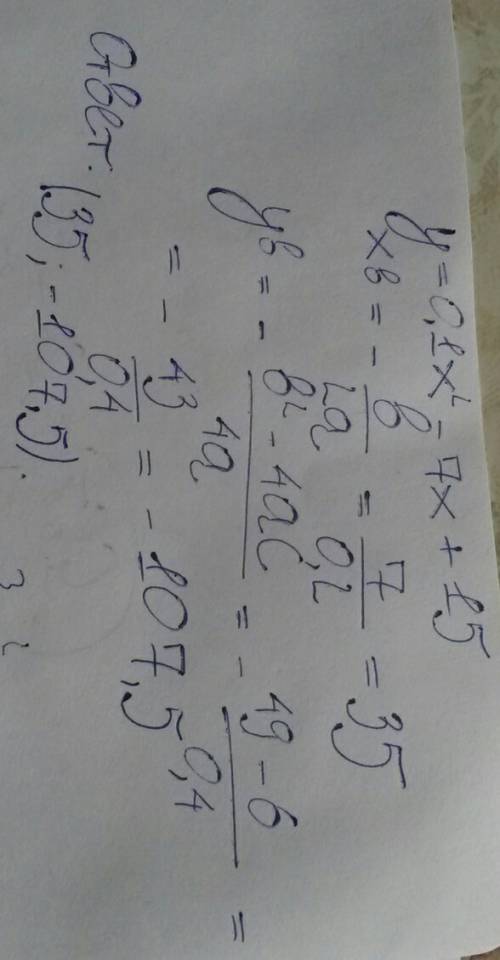 y = 0,1x² - 7x + 15
xв = - b/2a = 7/0,2 = 35
yв = - b² - 4ac/4a = - 49 - 6/0,4 =
= - 43/0,4 = - 107,5
Ответ: (35; -107,5).